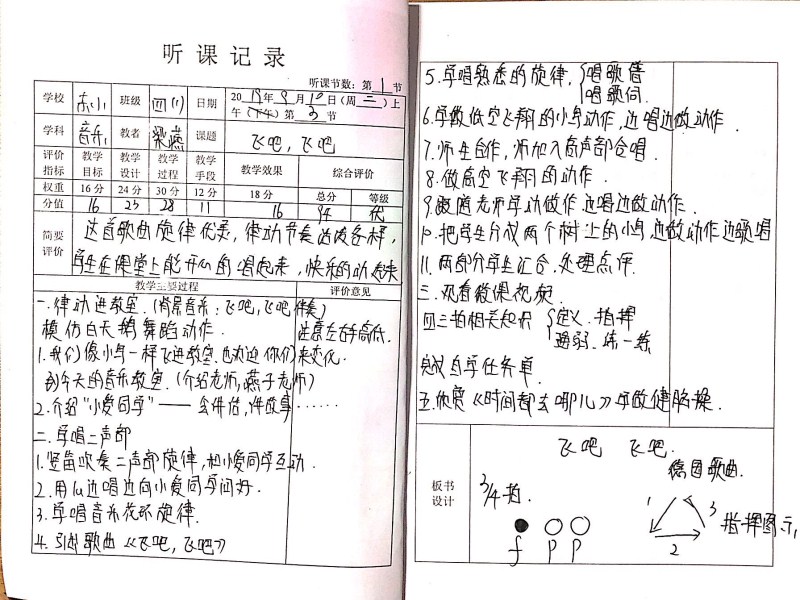 听课记录
听课节数：第1节
学校 东小 班级 四(1) 日期 2019年9月10日(周二)上
午(下午)第3节
学科 音乐 教者 梁燕 课题 飞吧，飞吧
评价指标 教学目标 教学设计 教学过程 教学手段 教学效果 综合评价
权重 16分 24分 30分 12分 18分 总分 等级
分值 16 23 28 11 16 94 优
简要评价 这首歌曲旋律优美，律动节奏多样，
学生在课堂上能开心的唱起来，快乐的动起来
教学主要过程 评价意见
一.律动进教室.(背景音乐：飞吧，飞吧伴奏)
模仿白天鹅舞蹈动作. 注意左右手高低.
1.我们像小鸟一样飞进教室.也欢迎你们来变化.
到今天的音乐教室.(介绍老师，燕子老师)
2.介绍“小爱同学”—— 会伴估，伴故事……
二.学唱二声部
1.竖笛吹奏二声部旋律，和小爱同学互动.
2.用lu边唱边向小爱同学问好.
3.学唱音乐花环旋律.
4.引出歌曲《飞吧，飞吧》
5.学唱熟悉的旋律， 唱歌谱
唱歌词.
6.学做低空飞翔的小鸟动作，边唱边做动作.
7.师生合作，师加入高声部合唱.
8.做高空飞翔的动作.
9.跟随老师学动做作.边唱边做动作.
10.把学生分成两个树上的小鸟边做动作边歌唱
11.两部分学生汇合，处理点评.
三.观看微课视频.
四三拍相关知识 定义.指挥
强弱.练一练
完成自学任务单.
五.欣赏《时间都去哪儿》学做健脑操.
板书设计
飞吧 飞吧.
德国歌曲.
3/4拍.
f p p
1 2 3 指挥图示，